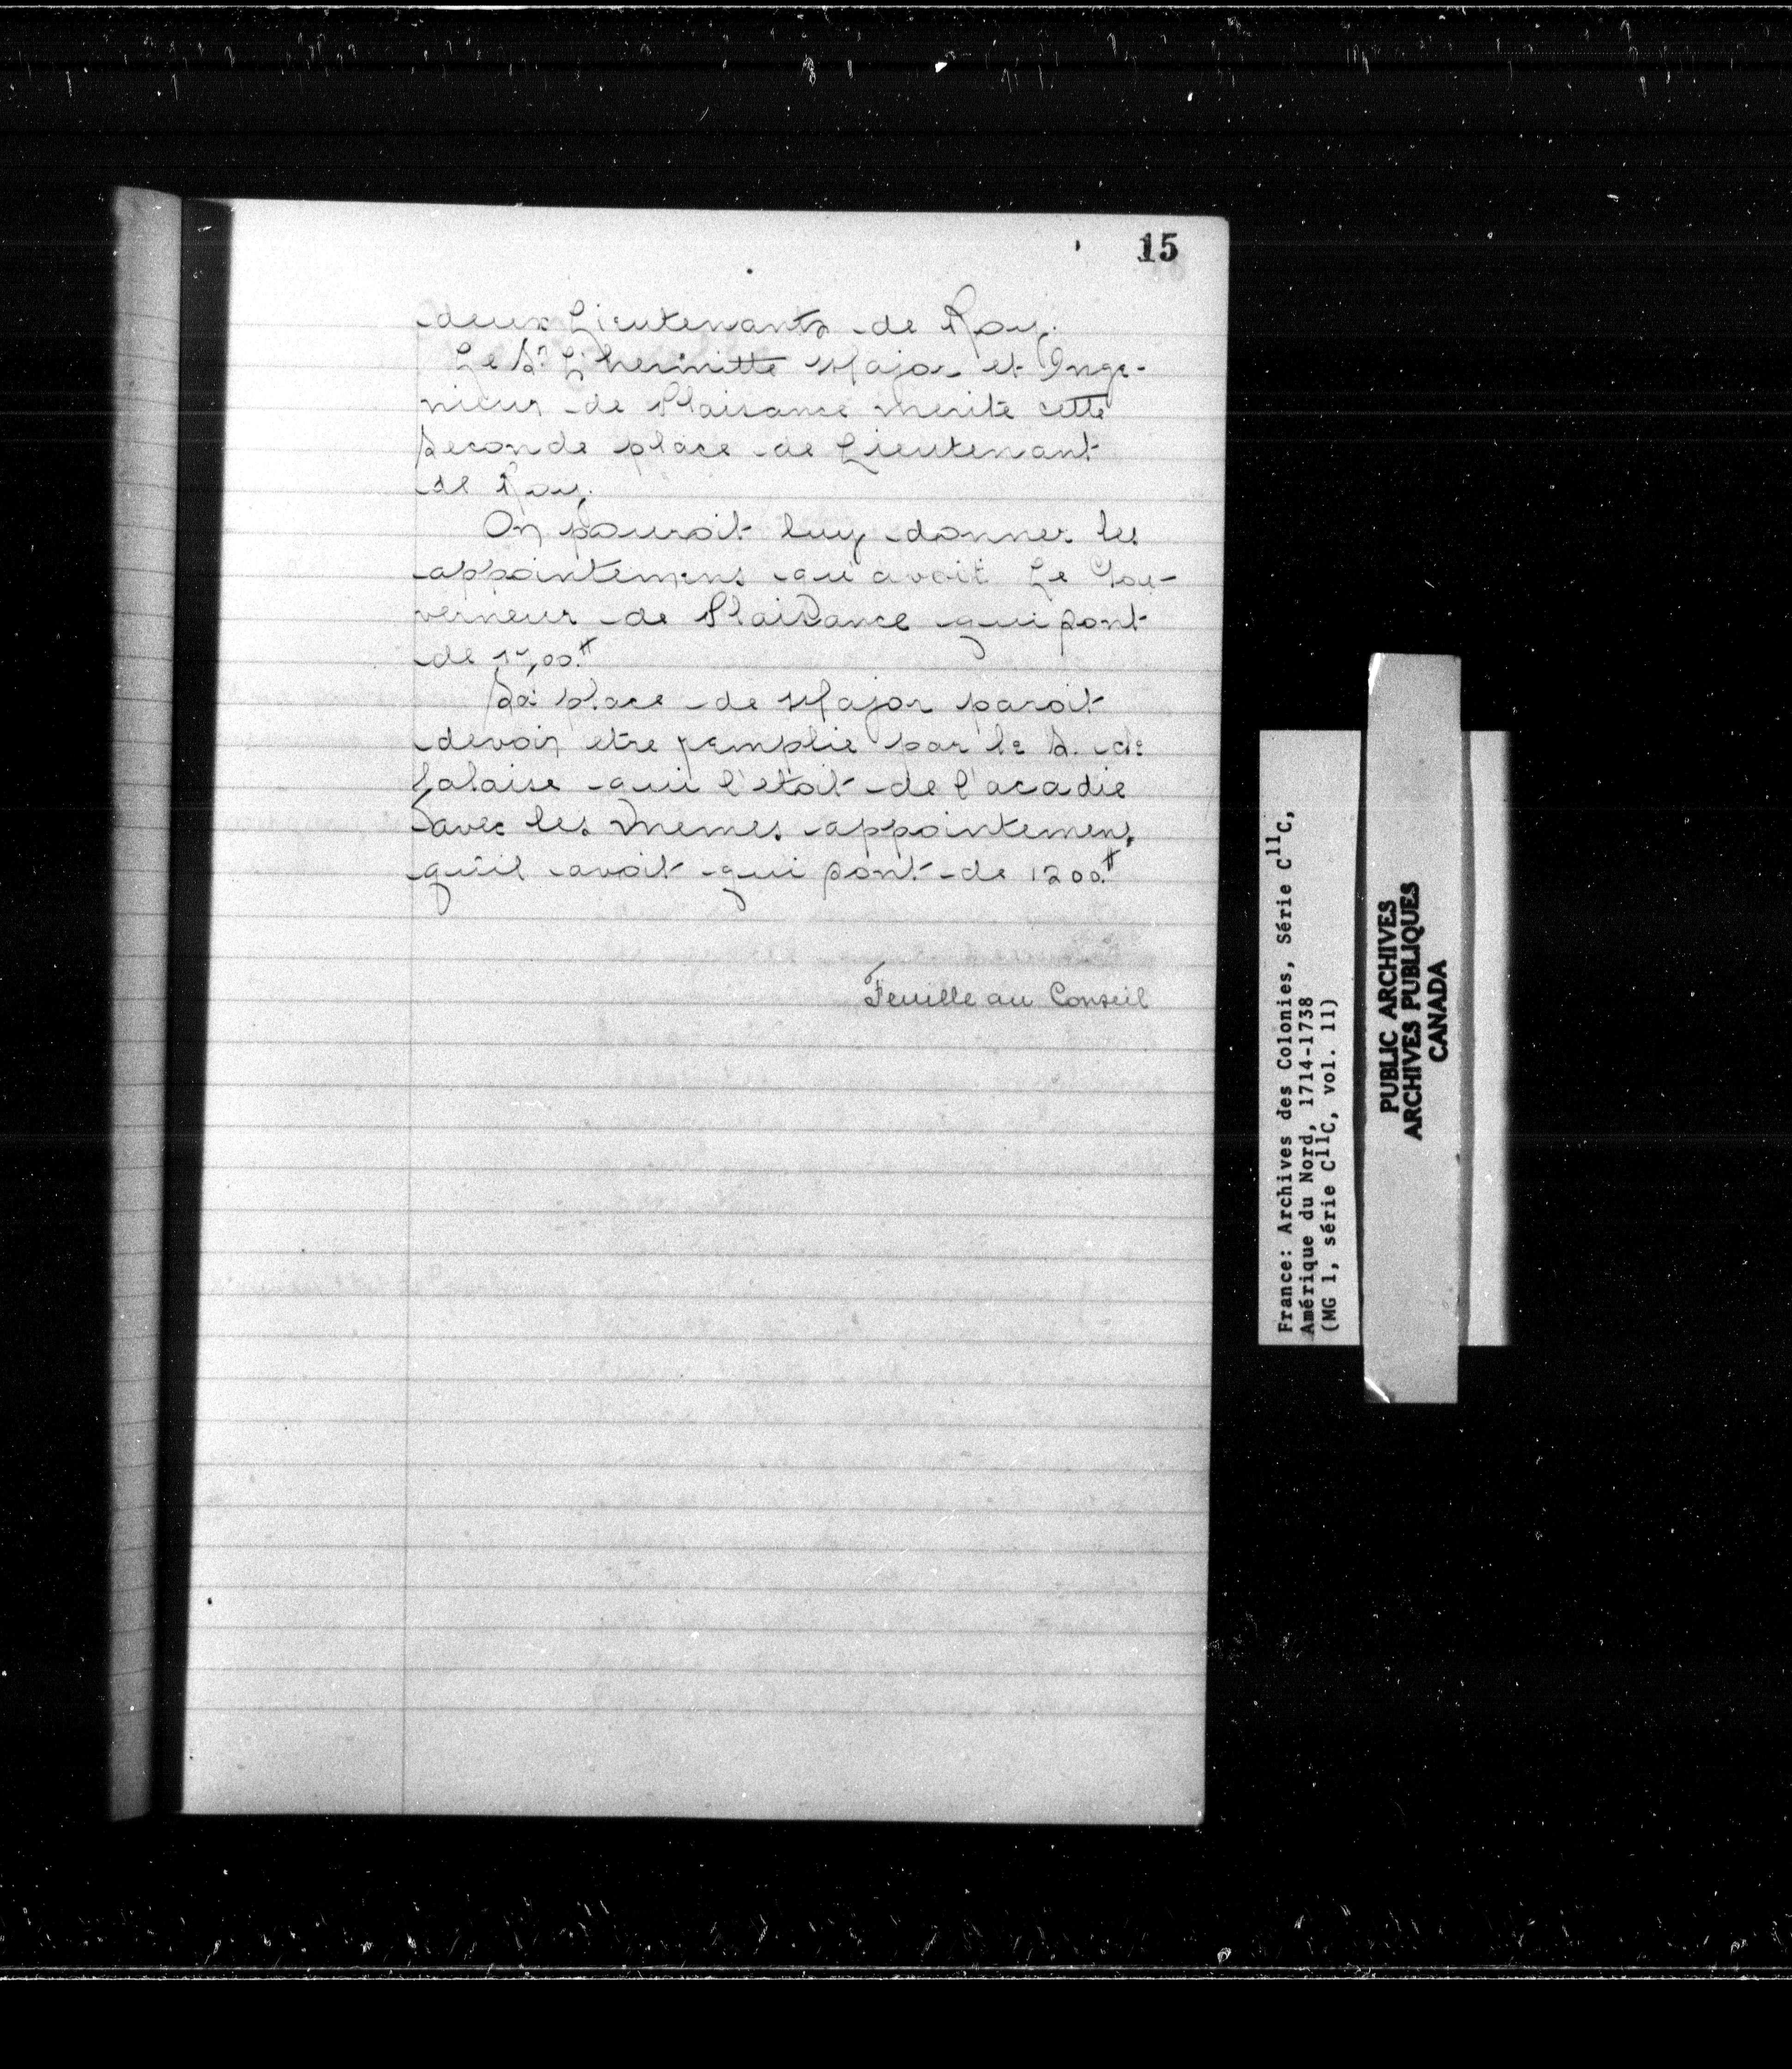 15
deux Lieutenants de Roy.
Le Sr. L'hermitte Major et Inge-
nieur de Plaisance merite cette
Seconde place de Lieutenant
de Roy.
On pouroit luy donner les
appointemens qu'avoit Le Gou-
verneur de Plaisance qui sont
de
La place de Major paroit
devoir etre remplie par le S. de
falaise qui l'etoit de l'acadie
avec les memes appointemens
qu'il avoit qui sont de 1200.tt
Feuille au Conseil
France: Archives des Colonies, Série C11C,
Amérique du Nord, 1714-1738
(MG 1, série C11C, vol. 11)
PUBLIC ARCHIVES
ARCHIVES PUBLIQUES
CANADA